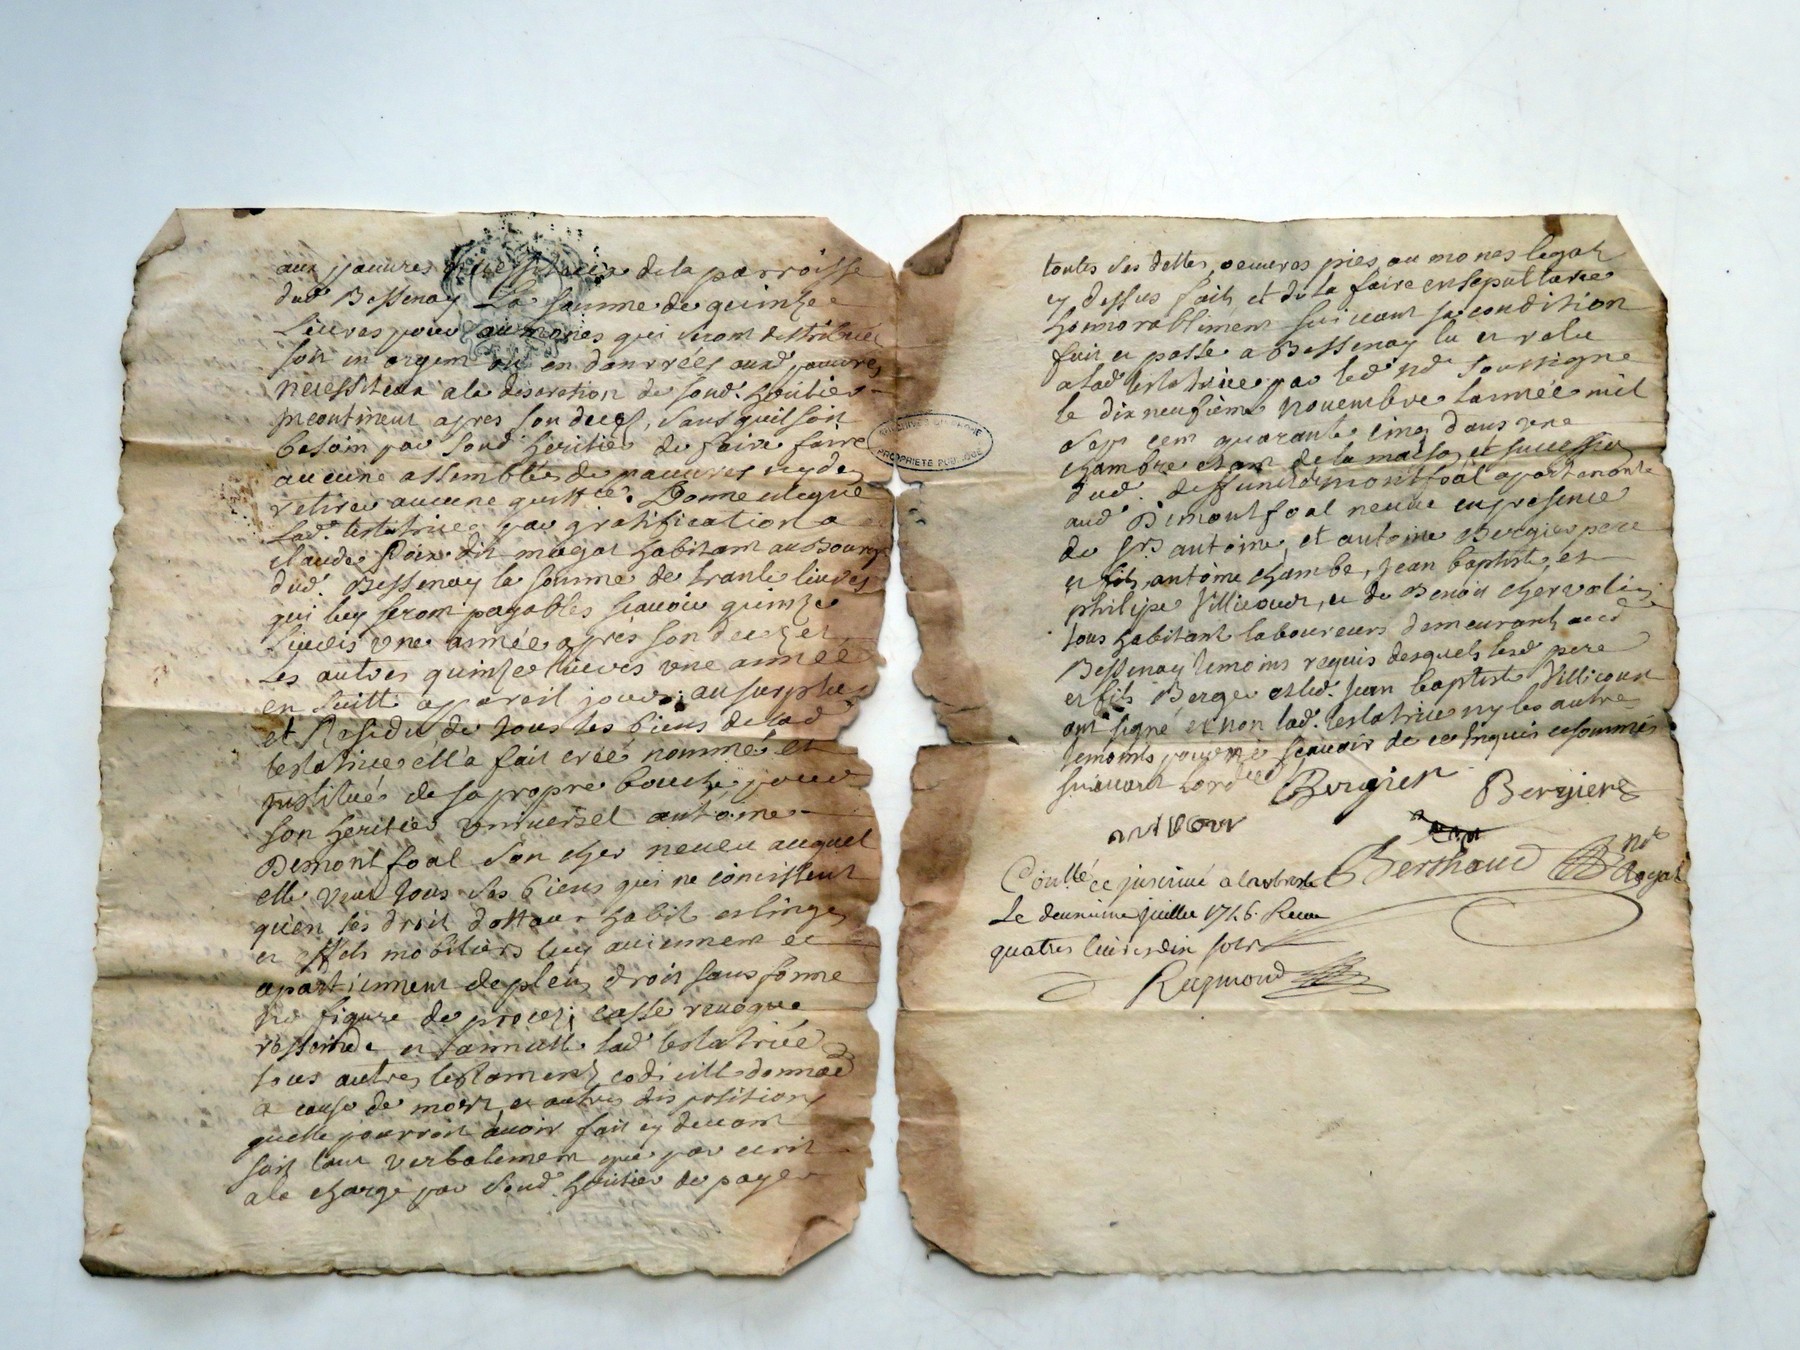 aux pauvres necessiteux de la parroisse
dud. Bessenay La somme de quinze
Livres pour aumones qui seront distribués
soit en argent ou en danrrées auxd. pauvres
necessiteux a la discretion de sond. heritier
incontinent apres son deces, sans quil soit
besoin par sond heritier de faire faire
aucune assemblée de pauvres ny den
retirer aucune quittce. Donne et legue
Lad. testatrice par gratification a
Claude dit magat habitant au Bourg
dud. Bessenay la somme de trante livres
qui luy seront payables scavoir quinze
Livres une année après son deces et
Les autres quinze livres une année
en suitte a pareil jour; au surplus
et Residu de tous les biens de lad
testatrice ella fait creé nommé et
institué de sa propre bouche pour
son heritier universel antoine
Demontfoal son cher neveu auquel
elle veut tous ses biens qui ne concistent
quen ses droit dottaux habit et linges
et effets mobiliers luy aviennent et
apartiennent de plein droit sans forme
ne figure de proces; casse revoque
et annulle lad testatrice
tous autres testament, codicille donna
a cause de mort, et autres dispositions
quelle pourroit avoir fait cy devant
soit tant verbalement que par ecrit
a la charge par sond. heritier de payer
ARCHIVES DU RHONE
PROPRIETE PUBLIQUE
toutes ses dettes, oeuvres pies au mones legat
cy dessus faits et de la faire ensepulturee
honnorablement suivant sa condition
fait et passé a Bessenay lu et relu
a lad testatrice par led nre soussigne
le dix neufieme novembre lannée mil
sept cent quarante cinq dans une
chambre etant de la maison et succession
dud. deffunt demontfoal apartenante
aud Demontfoal neveu en presence
de srs antoine, et antoine Bergier pere
et fils, antoine chambe, Jean baptiste, et
philipe Villicour, et de Benoit chervolin
tous habitant laboureurs demeurants aud
Bessenay temoins requis desquels lesd pere
et fils Bergier et led. Jean baptiste Villicour
ont signé et non lad. testatrice ny les autres
temoins pour ne scavoir de ce enquis et sommés
suivant lordce
Bergier Bergier
Berthaud nre Royal
Conllé ce insinué a larbresle
Le deuxieme juillet 1746. Receu
quatres livres dix sols
Raymond